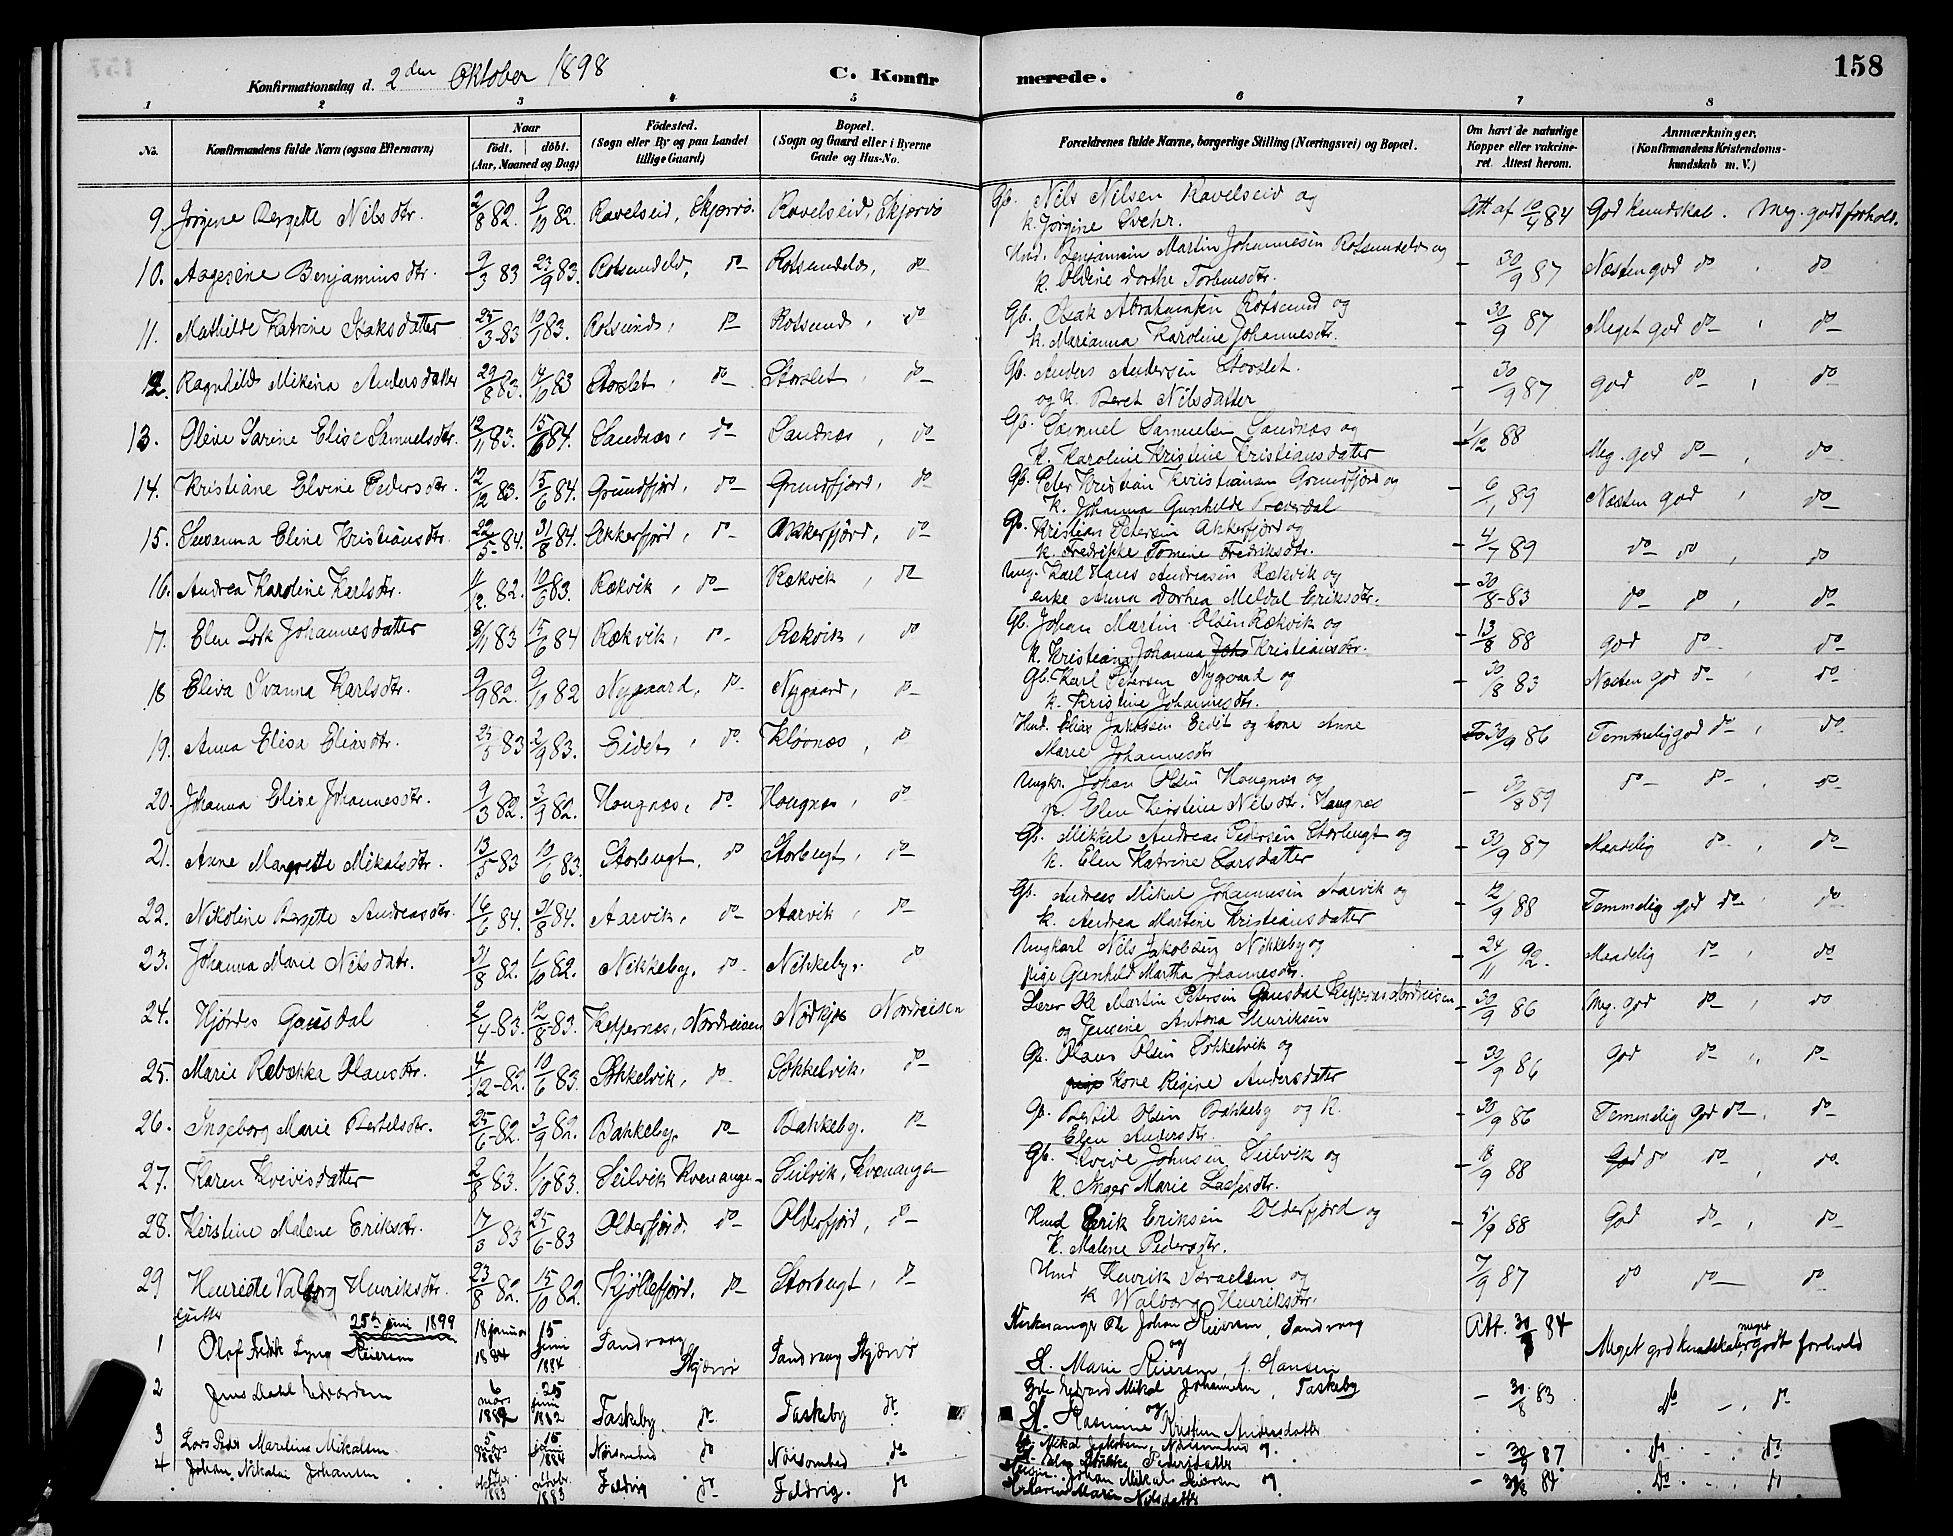 158
Konfirmationsdag d. 2den Oktober 1898 C. Konfirmerede.
1 2 3 4 5 6 7 8
No. Konfirmandens fulde Navn (ogsaa Efternavn) Naar født. døbt. (Aar, Maaned og Dag) Fødested. (Sogn eller By og paa Landet tillige Gaard) Bopæl. (Sogn og Gaard eller i Byerne Gade og Hus-No. Forældrenes fulde Navne, borgerlige Stilling (Næringsvei) og Bopæl. Om havt de naturlige Kopper eller vaccineret. Attest herom. Anmærkninger. (Konfirmandens Kristendomskundskab m. V.)
9. Jørgine Bergette Nilsdtr. 2/8 82. 9/10 82. Ravelseid, Skjærvø. Ravelseid, Skjærvø Gb. Nils Nilsen Ravelseid og
k. Jørgine Svehr. Att af 10/9 84 God kundskab. Meg. godt forhold.
10. Aagesine Benjaminsdtr. 9/3 83 23/9 83. Rotsundelv, do Rotsundelv, do Hmd. Benjamin Martin Johannesen Rotsundelv og
k. Oldine Dorthe Torbensdtr. - 30/9 87 Næsten god do , do
11. Mathilde Katrine Isaksdatter 25/3-83 10/83. Rotsund, do Rotsund, do Gb. Isak Abrahamsen Rotsund og
k. Marianna Karoline Johannesdtr. - 30/9 87 Meget god do , do
12. Ragnhild Mikina Andersdatter 29/8 83. 14/10 83 Storslet, do Storslet do Gb. Anders Andersen Storslet.
og k. Beret Nilsdatter - 30/9 87 God do , do
13. Oleine Sarine Elise Samuelsdtr. 12/11 83. 15/6 84. Sandnæs, do Sandnæs, do Gb. Samuel Samuelsen Sandnæs og
k. Karoline Kristine Kristiansdatter - 1/12 88 Meg. god do , do
14. Kristiane Elvine Pedersdtr. 12/12 83. 15/6 84. Grundfjord, do Grundfjord, do Gb. Peter Kristian Kristiansen Grundfjord og
k. Johanna Gunhilde - 6/1 89 Næsten god , do
15. Susanna Eline Kristiansdtr. 22/5-84. 31/8 84. Akkerfjord, do Akkerfjord, do Gb. Kristian Petersen Akkerfjord og
k. Fredrikke Tomine Fredriksdtr. - 4/7 89 do do , do
16. Andrea Karoline Karlsdtr. 11/12. 82. 10/6 83. Rækvik, do Rækvik, do Ung. Karl Hans Andreasen Rækvik og
enke Anna Dorhea Meldal Eriksdtr. - 30/8-83 do do , do
17. Elen Johannesdatter 8/11 83 15/6 84 Rækvik, do Rækvik, do Gb. Johan Martin Olsen Rækvik og
k. Kristiana Johanna Joha Kristiansdtr. - 13/8 88 God do do
18 Eliva Ivanna Karlsdtr. 9/9 82. 9/10 82 Nygaard, do Nygaard, do Gb. Karl Petersen Nygaard og
k. Kristine Johannesdtr. - 30/8 83 Næsten god do , do
19. Anna Elisa Eliasdtr. 25/5 83 2/9 83. Eidet, do. Kløvnæs, do Hmd. Elias Jakobsen Eedit og kone Anne
Marie Johannesdtr 30/9 86 Temmelig god do , do
20. Johanna Elise Johannesdtr. 9/3 82. 3/9 82. Hougnæs, do Hougnæs, do Ungkr. Johan Olsen Hougnæs og
p. Elen Kirstine Nilsdtr. Haugnæs - 30/8 89 do do , do
21. Anne Margrette Mikalsdtr. 13/5 83 10/6 83. Storbugt, do Storbugt, do Gb. Mikkel Andreas Pedersen Storbugt og
k. Elen Katrine Larsdatter - 30/9 87 Maadelig do , do
22. Nikoline Bergette Andreasdtr. 16/6 84. 31/8 84. Aarvik, do Aarvik, do Gb. Andreas Mikal Johannesen Aarvik og
k. Andrea Martine Kristiansdatter - 12/9 88 Temmelig god do do
23. Johanna Marie Nilsdatr. 31/8 82. 1/10 82. Nikkeby. do. Nikkeby. do Ungkarl Nils Jakobsen Nikkeby og
pige Gunhild Martha Johannesdtr. - 24/11 92. Maadelig do , do
24. Hjørdis Gausdal 2/4-83. 12/8-83. Keppernæs, Nordreisen Nordkjos Nordreisen Lærer Ole Martin Petersen Gausdal Keppernæs Nordreisen
og Jensine Antona Henriksen - 30/9 86 Meg. god do , do
25. Marie Rebekka Olausdtr. 4/12-82. 10/6 83. Sokkelvik, do Sokkelvik, do Gb. Olaus Olsen Sokkelvik og
pige kone Regine Andersdatter - 30/9 86 God do , do
26. Ingeborg Marie Bertelsdtr. 25/6-82. 3/9 82. Bakkeby. do Bakkeby. do Gb. Bertil Olsen Bakkeby og k.
Elen Andersdtr. - 30/9 86 Temmelig god do , do
27. Karen Kvivisdatter 2/8 83. 1/10 83. Seilvik Kvenange- Seilvik, Kvænangen Gb. Kvive Johnsen Seilvik og
k. Inger Marie dtr. - 18/9 88 God do do , do.
28. Kirstine Malene Eriksdtr. 17/3 83 25/6-83 Olderfjord. do Olderfjord, do Hmd Erik Eriksen Olderfjord og
k. Malene Pedersdtr. - 5/9 88 God do , do
29 Henriette Valborg Henriksdtr. 23/8 82. 15/10 82. Kjøllefjord. do Storbugt, do Hmd Henrik Israelsen og
k Walborg Henriksdtr. 7/9 87 do do do
Gutter 25de juni 1899
1 Olof Fredik Lyng Reiersen 18 januar 1884 15 juni 1884 Sandvaag Skjærvø Sandvaag Skjærvø Kirkesanger Ole Johan Reiersen, Sandvaag
og
K. Marie Reiersen f. Hansen Att. 30/8 84 Meget god kundskab, meget godt forhold
2 Jens Dahl Edvardsen 6 mars 1882 25 juni 1882 Taskeby do Taskeby do Edvard Mikal Johannesen, Taskeby
og
K. Rasmine Kristine Andersdatter - 30/8 83 do , do
3 Lars Peder Marelius Mikalsen 5 mars 1884 15 juni 1884 do do Mikal Jakobsen, og
Pedersdatter - 30/9 87 do do
4 Johan Nikolai Johansen 1883 1883 Faldvig do Faldvig. do Johan Mikal Reiersen og
Maria Nilsdatter - 30/8 84 do do